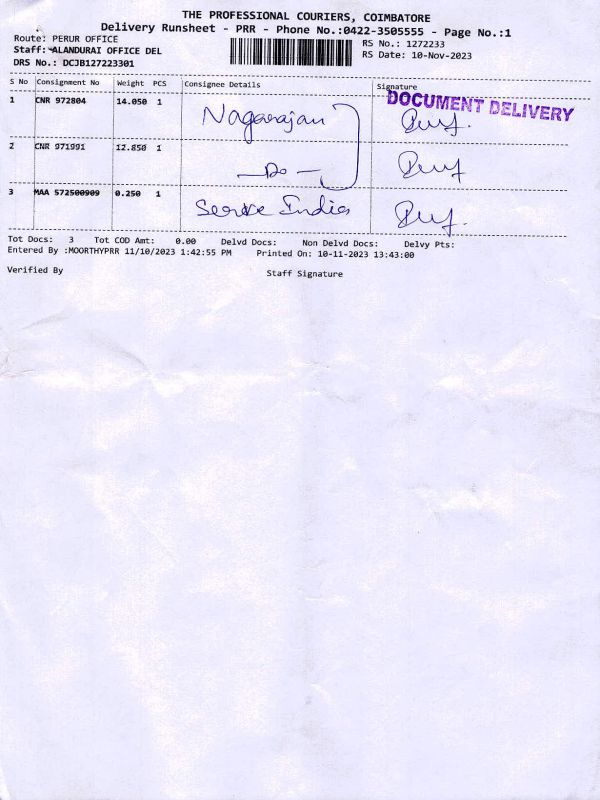 THE PROFESSIONAL COURIERS, COIMBATORE
Delivery Runsheet - PRR - Phone No.:0422-3505555 - Page No.:1
Route: PERUR OFFICE
RS No.: 1272233
Staff: ALANDURAI OFFICE DEL
RS Date: 10-Nov-2023
DRS No.: DCJB127223301
S No Consignment No Weight PCS Consignee Details Signature
DOCUMENT DELIVERY
1 CNR 972804 14.050 1 Nagarajan
2 CNR 971991 12.850 1 —Do—
3 MAA 572500909 0.250 1 Serve India
Tot Docs: 3 Tot COD Amt: 0.00 Delvd Docs: Non Delvd Docs: Delvy Pts:
Entered By :MOORTHYPRR 11/10/2023 1:42:55 PM Printed On: 10-11-2023 13:43:00
Verified By Staff Signature